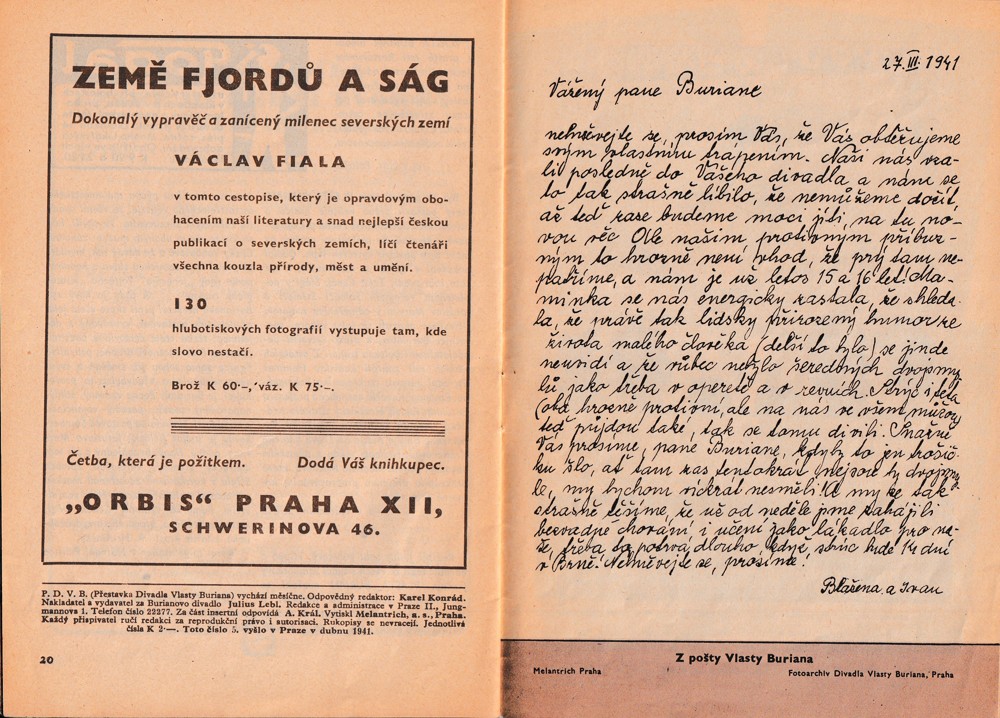 ZEMĚ FJORDŮ A SÁG
Dokonalý vypravěč a zanícený milenec severských zemí
VÁCLAV FIALA
v tomto cestopise, který je opravdovým obo-
hacením naší literatury a snad nejlepší českou
publikací o severských zemích, líčí čtenáři
všechna kouzla přírody, měst a umění.
130
hlubotiskových fotografií vystupuje tam, kde
slovo nestačí.
Brož K 60·–, váz. K 75·–.
Četba, která je požitkem. Dodá Váš knihkupec.
„ORBIS“ PRAHA XII,
SCHWERINOVA 46.
P. D. V. B. (Přestavka Divadla Vlasty Buriana) vychází měsíčne. Odpovědný redaktor: Karel Konrád.
Nakladatel a vydavatel za Burianovo divadlo Julius Lebl. Redakce a administrace v Praze II., Jung-
mannova 1. Telefon číslo 22277. Za část insertní odpovídá A. Král. Vytiskl Melantrich, a. s., Praha.
Každý přispivatel ručí redakci za reprodukční právo i autorisaci. Rukopisy se nevracejí. Jednotlivá
čísla K 2·—. Toto číslo 5. vyšlo v Praze v dubnu 1941.
20
27. III. 1941
Vážený pane Buriane
nehněvejte se, prosím Vás, že Vás obtěžujeme
svým vlastním trápením. Naši nás vza-
li posledně do Vašeho divadla a nám se
to tak strašně líbilo, že nemůžeme dočít,
až teď zase budeme moci jíti na tu no-
vou věc. Ale našim protivným příbuz-
ným to hrozně není vhod, že prý tam ne-
patříme, a nám je už letos 15 a 16 let! Ma-
minka se nás energicky zastala, že shleda-
la, že právě tak lidsky přirozený humor ze
života malého člověka (delší to bylo) se jinde
neuvidí a že vůbec nebylo šeredných dvojsmy-
lů jako třeba v operetě a v revuích. Strýc i teta
(oba hrozně protivní, ale na nás ve všem můžou)
teď půjdou také, tak se tomu divili. Snažně
Vás prosíme, pane Buriane, kdyby to jen trošič-
ku šlo, ať tam zas tentokrát nejsou ty dvojsmy-
le, my bychom víckrát nesměli! A my se tak
strašně těšíme, že už od neděle jsme zahájili
bezvadné chování i učení jako lákadlo pro na-
še, třeba to potrvá dlouho, když strýc bude 14 dní
v Brně! Nehněvejte se, prosíme!
Blažena a Ivan
Z pošty Vlasty Buriana
Melantrich Praha
Fotoarchiv Divadla Vlasty Buriana, Praha